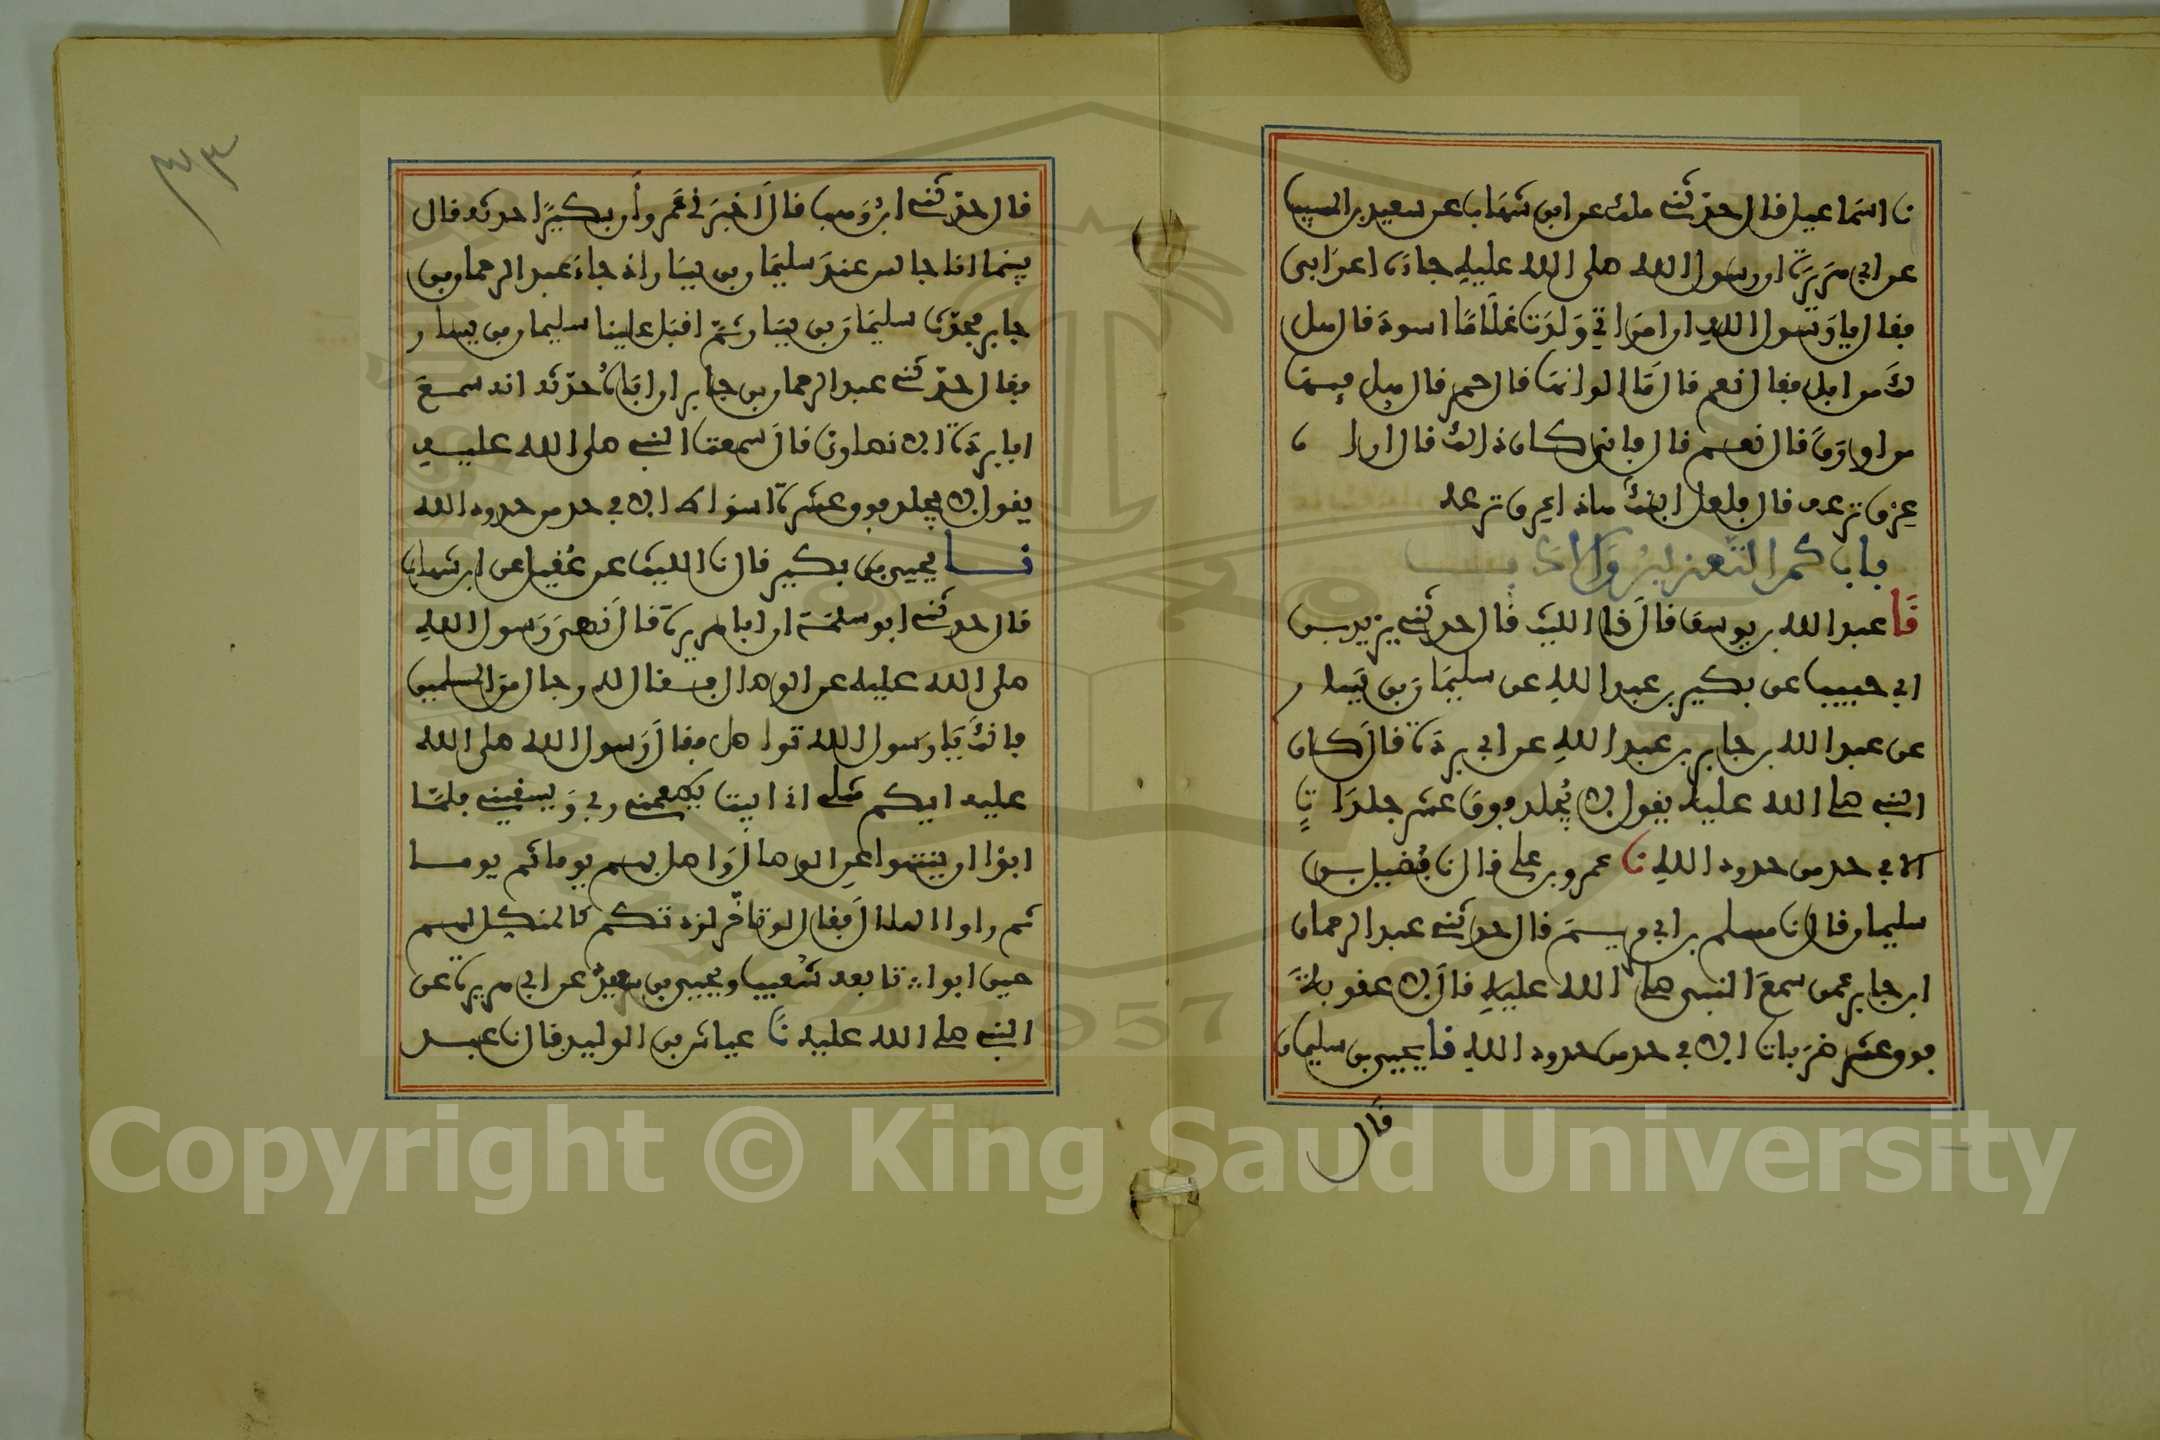 نا اسماعيل قال حدثني ملك عن ابن شهاب عن سعيد بن المسيب
عن ابي هريرة ان رسول الله صلى الله عليه جاءه اعرابي
فقال يا رسول الله ان امراتي ولدت غلاما اسود قال هل
لك من ابل فقال نعم قال ما الوانها قال حمر قال هل فيها
من اورق قال نعم قال فانى كان ذلك قال اراه
عرق نزعه قال فلعل ابنك هذا عرق نزعه
باب كم التعزير والادب
نا عبد الله بن يوسف قال نا الليث قال حدثني يزيد بن
ابي حبيب عن بكير بن عبد الله عن سليمان بن يسار
عن عبد الله بن جابر بن عبد الله عن ابي بردة قال كان
النبي صلى الله عليه يقول لا يجلد فوق عشر جلدات
الا في حد من حدود الله نا عمرو بن علي قال نا فضيل بن
سليمان قال نا مسلم بن ابي مريم قال حدثني عبد الرحمان
ابن جابر عمن سمع النبي صلى الله عليه قال لا عقوبة
فوق عشر ضربات الا في حد من حدود الله نا يحيى بن سليمان
قال
قال حدثني ابن وهب قال اخبرني عمرو أن بكيرا حدثه قال
بينما انا جالس عند سليمان بن يسار اذ جاء عبد الرحمان بن
جابر فحدث سليمان بن يسار ثم اقبل علينا سليمان بن يسار
فقال حدثني عبد الرحمان بن جابر ان اباه حدثه انه سمع
ابا بردة الانصاري قال سمعت النبي صلى الله عليه
يقول لا يجلد فوق عشرة اسواط الا في حد من حدود الله
نا يحيى بن بكير قال نا الليث عن عقيل عن ابن شهاب
قال حدثني ابو سلمة ان ابا هريرة قال نهى رسول الله
صلى الله عليه عن الوصال فقال له رجال من المسلمين
فانك يا رسول الله تواصل فقال رسول الله صلى الله
عليه ايكم مثلي اني ابيت يطعمني ربي ويسقيني فلما
ابوا ان ينتهوا عن الوصال واصل بهم يوما ثم يوما
ثم راوا الهلال فقال لو تاخر لزدتكم كالمنكل لهم
حين ابوا تابعه شعيب ويحيى بن سعيد عن ابي هريرة عن
النبي صلى الله عليه نا عياش بن الوليد قال نا عبد